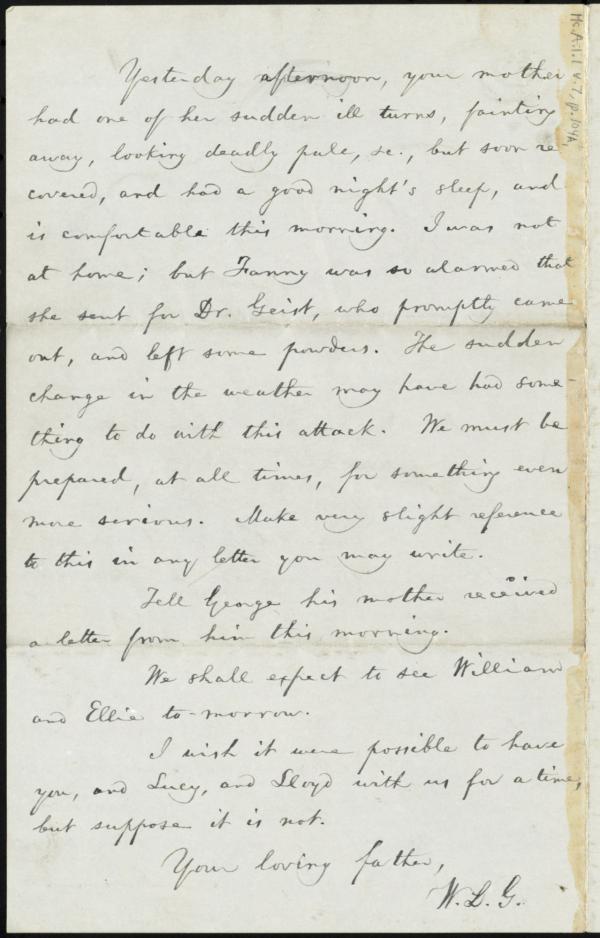 Ms.A.1.1 v.7, p.104A
Yesterday afternoon, your mother
had one of her sudden ill turns, fainting
away, looking deadly pale, &c., but soon re-
covered, and had a good night's sleep, and
is comfortable this morning. I was not
at home; but Fanny was so alarmed that
she sent for Dr. Geist, who promptly came
out, and left some powders. The sudden
change in the weather may have had some-
thing to do with this attack. We must be
prepared, at all times, for something even
more serious. Make very slight reference
to this in any letter you may write.
Tell George his mother received
a letter from him this morning.
We shall expect to see William
and Ellie to-morrow.
I wish it were possible to have
you, and Lucy, and Lloyd with us for a time,
but suppose it is not.
Your loving father,
W.L.G.